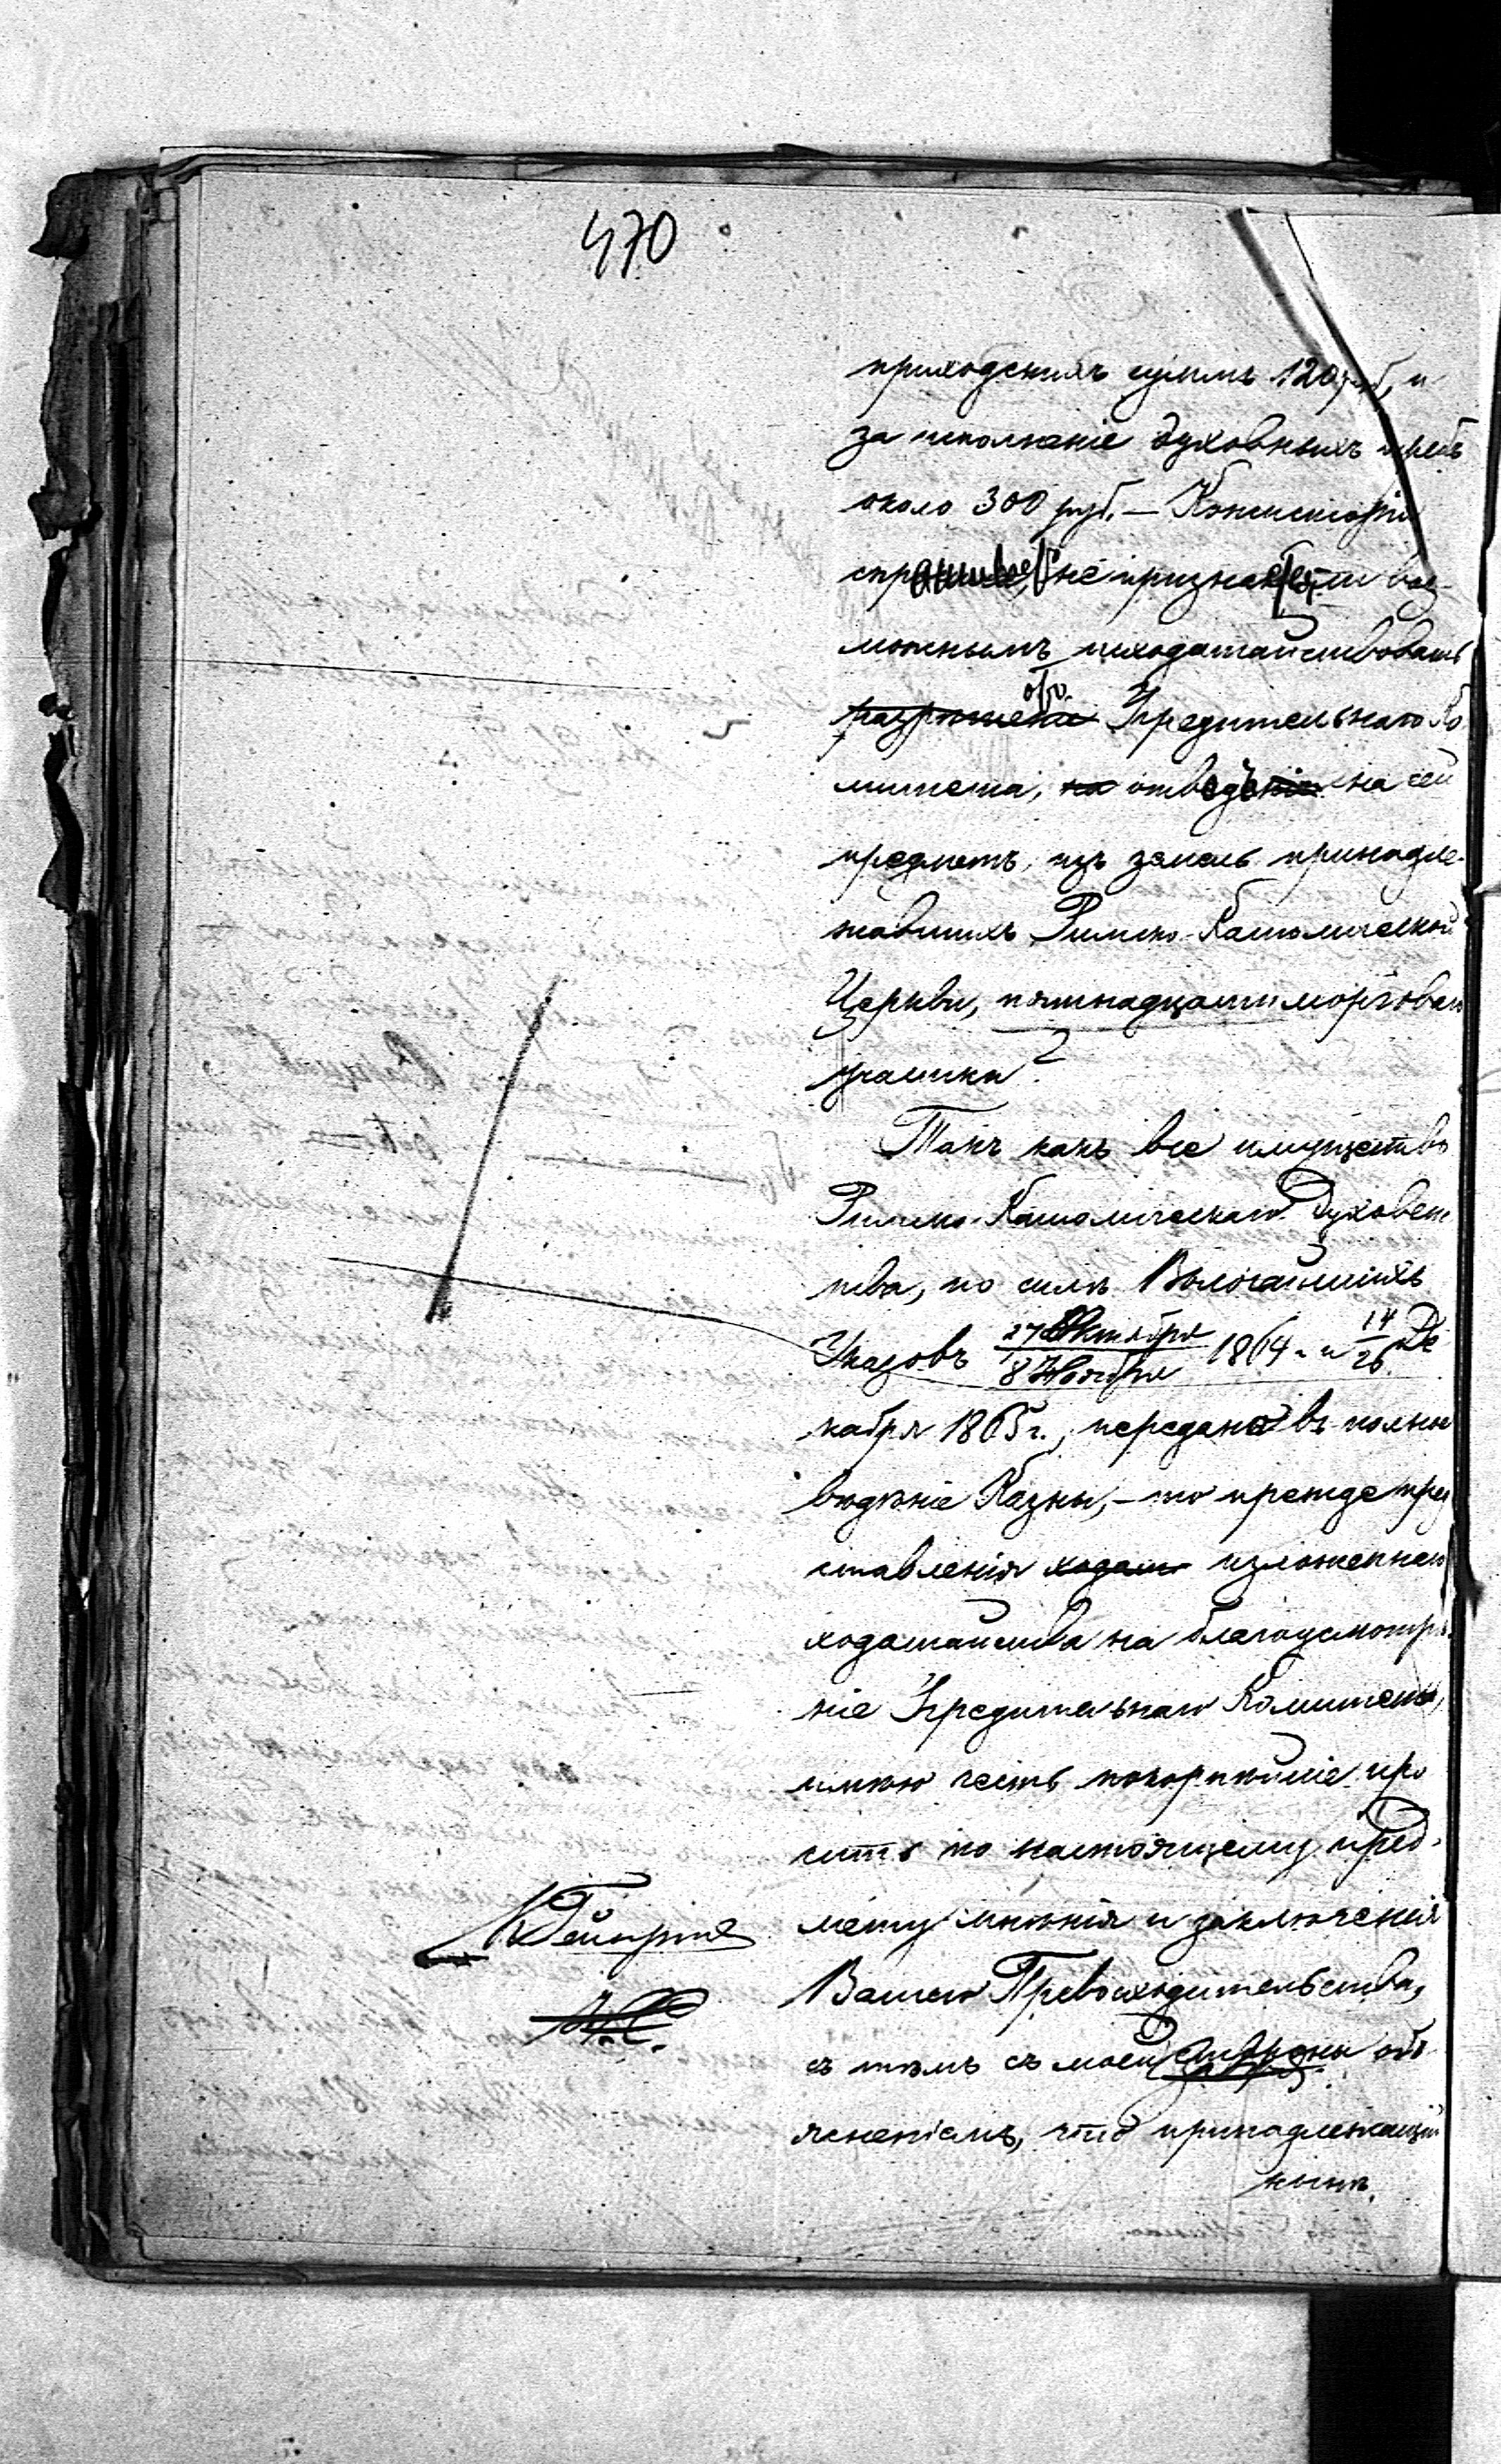 470
приходскихъ суммъ 120 руб, и
за исполненіе духовныхъ требъ
около 300 руб. — Консисторія
спрашиваетъ, не признаете ли воз-
можнымъ исходатайствовать
разрѣшеніе Учредительнаго Ко
митета, на отведеніе на сей
предметъ, изъ земель принадле-
жавшихъ Римско-Католической
Церкви, пятнадцати морговаго
участка?
Такъ какъ все имущество
Римско-Католическаго Духовен
ства, по силѣ Высочайшихъ
Указовъ 27 Октября / 8 Ноября 1864 и 14/26 Де
кабря 1865 г., передано въ полное
вѣдѣніе Казны, — то прежде пред
ставленія ходат изложеннаго
ходатайства на благоусмотрѣ
ніе Учредительнаго Комитета,
имѣю честь покорнѣйше про
сить по настоящему пред-
мету мнѣнія и заключенія
Вашего Превосходительства,
съ тѣмъ съ моей стороны объ
ясненіемъ, что принадлежащій
нынѣ